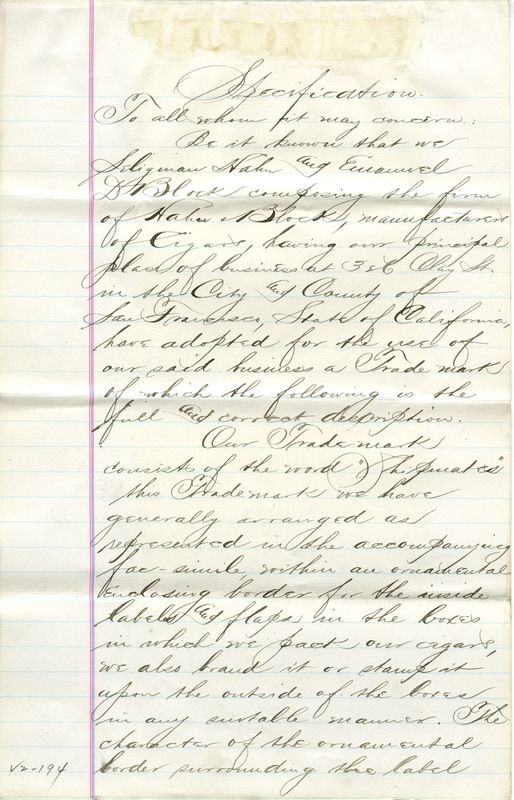 Specification.
To all whom it may concern:
Be it known that we
Seligman Hahn and Emanuel
D Block composing the firm
of Hahn & Block, manufacturers
of Cigars, having our principal
place of business at Clay St.
in the City and County of
San Francisco, State of California,
have adopted for the use of
our said business a Trade mark
of which the following is the
full and correct description.
Our Trade mark
consists of the word "Shipmates"
this Trademark we have
generally arranged as
represented in the accompanying
fac-simile within an ornamental
enclosing border for the inside
labels and flaps in the boxes
in which we pack our cigars,
we also brand it or stamp it
upon the outside of the boxes
in any suitable manner. The
character of the ornamental
border surrounding the label
V2-194